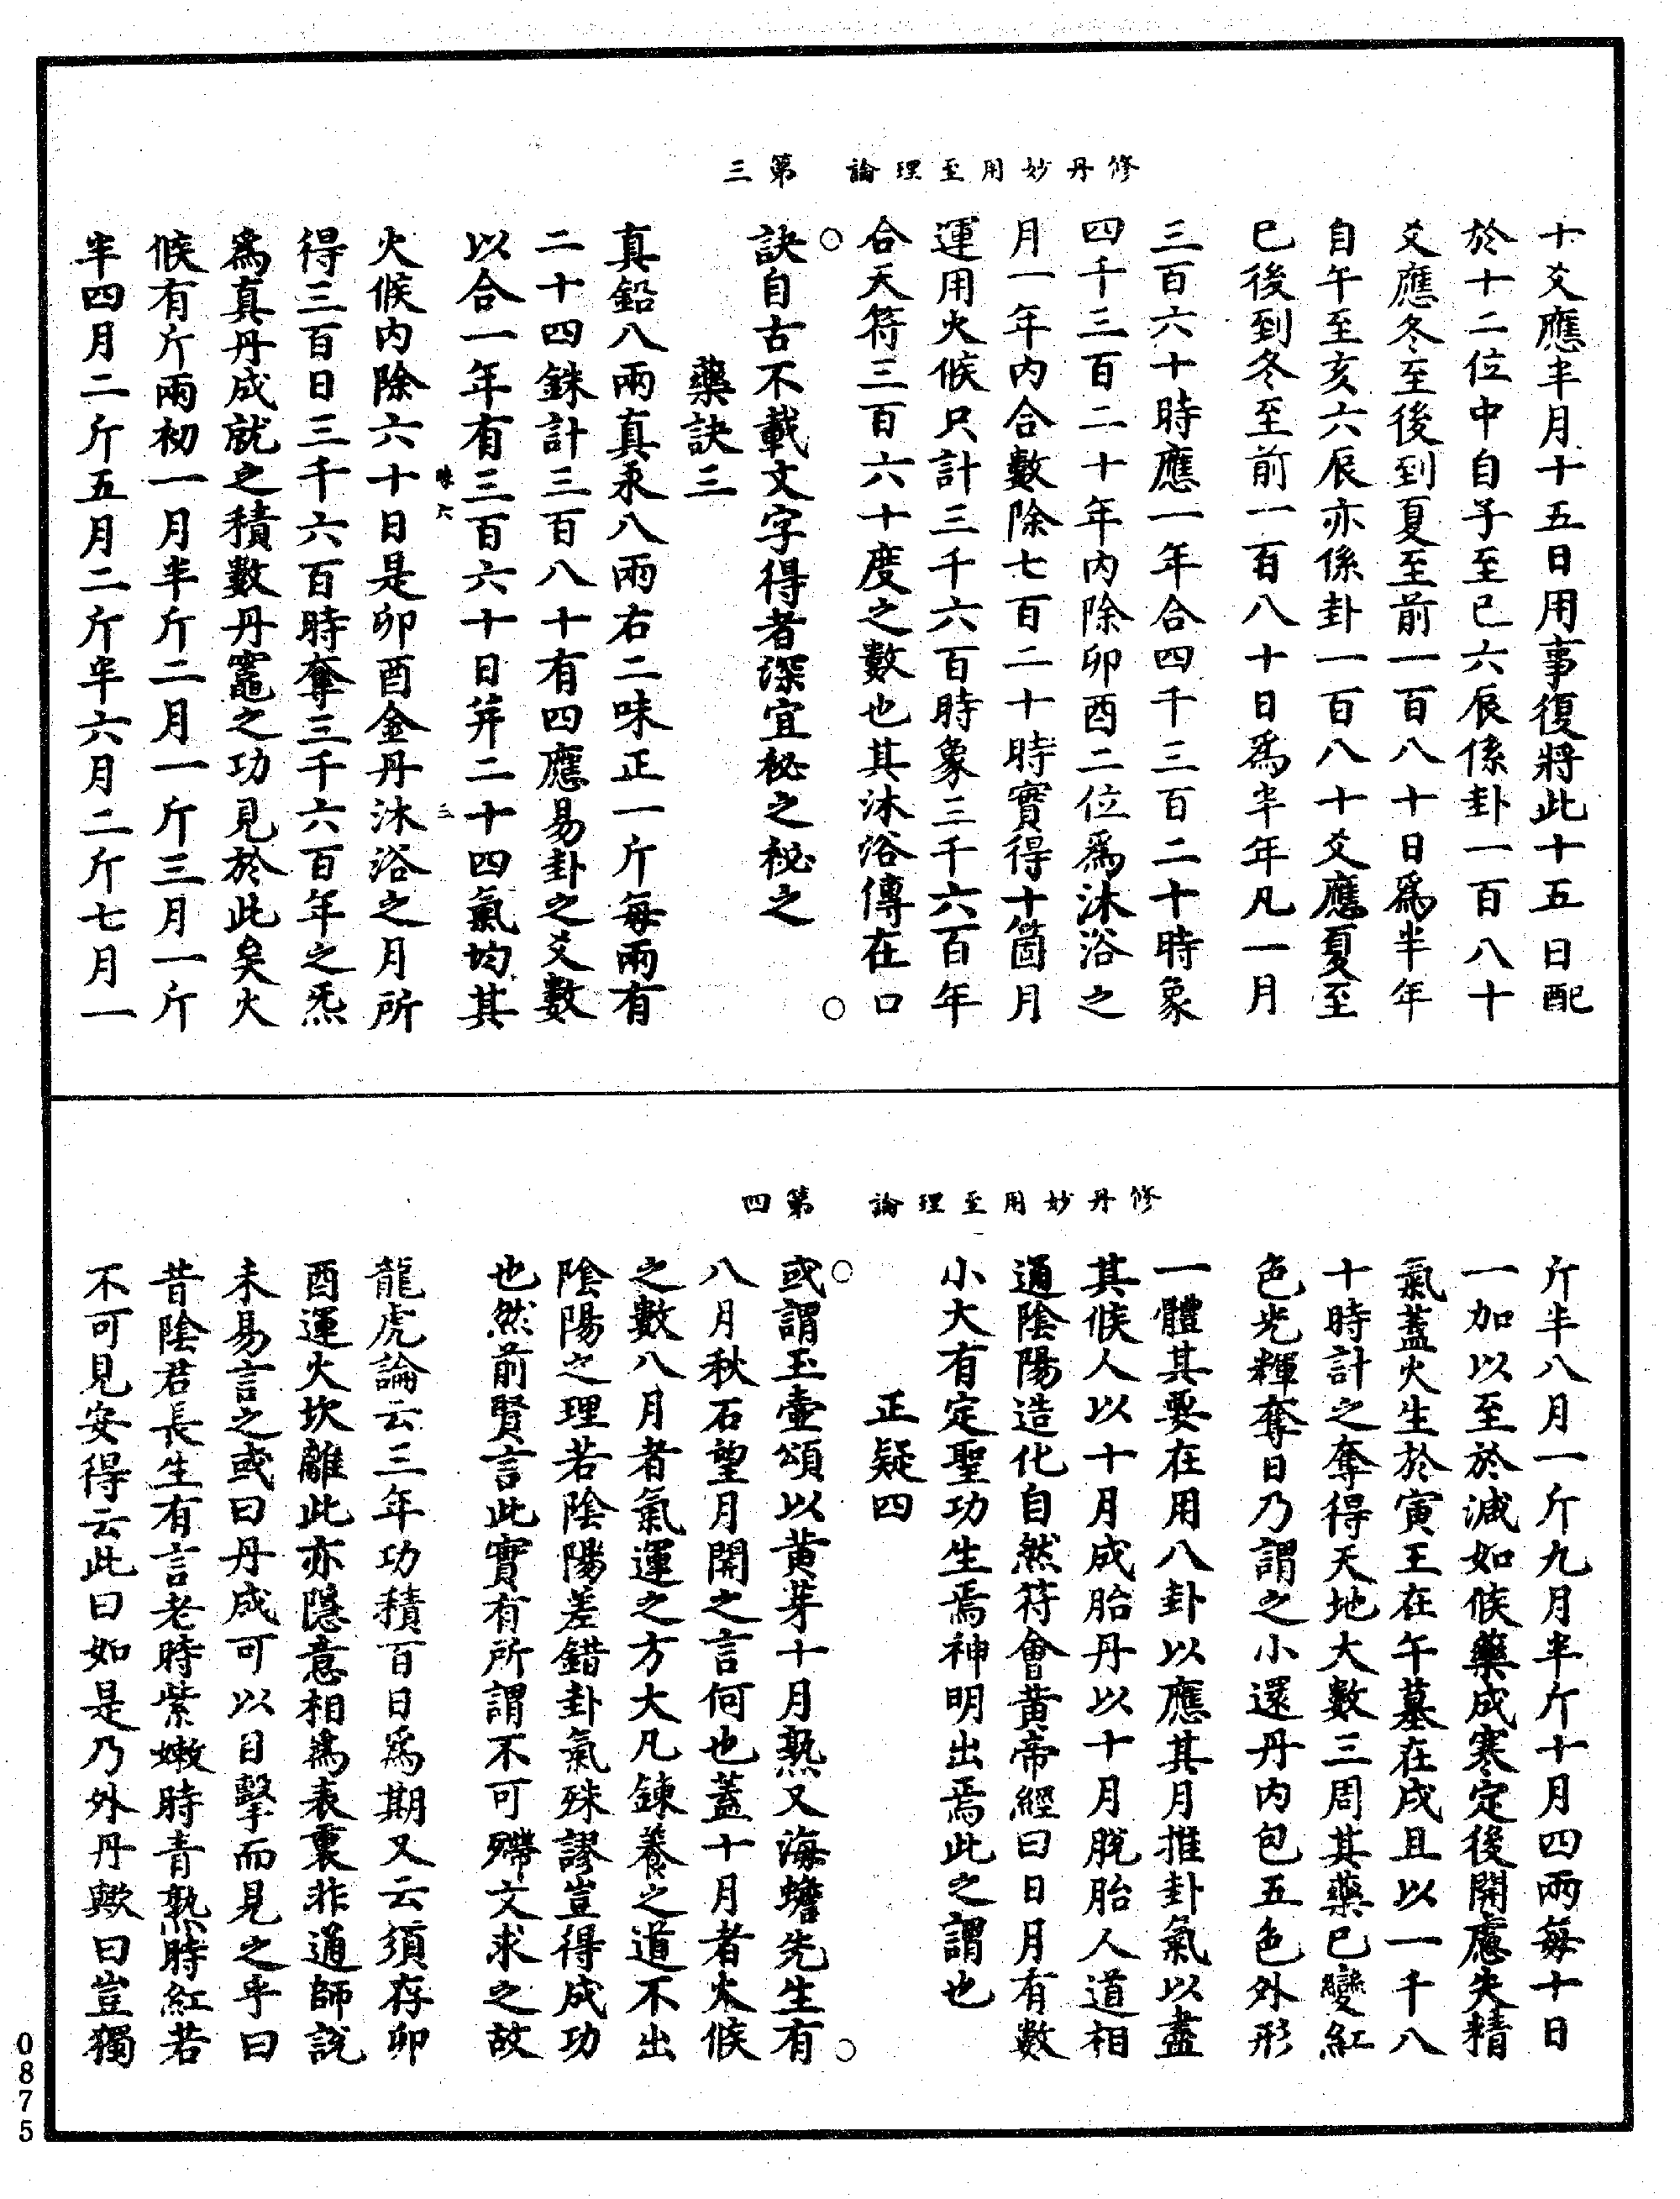 修丹妙用至理論　第三
十爻應半月十五日用事復將此十五日配
於十二位中自子至巳六辰係卦一百八十
爻應冬至後到夏至前一百八十日爲半年
自午至亥六辰亦係卦一百八十爻應夏至
已後到冬至前一百八十日爲半年凡一月
三百六十時應一年合四千三百二十時象
四千三百二十年内除卯酉二位爲沐浴之
月一年内合數除七百二十時實得十箇月
運用火候只計三千六百時象三千六百年
合天符三百六十度之數也其沐浴傳在口
訣自古不載文字得者深宜秘之秘之
藥訣三
真鉛八兩真汞八兩右二味正一斤每兩有
二十四銖計三百八十有四應易卦之爻數
以合一年有三百六十日筭二十四氣均其
火候内除六十日是卯酉金丹沐浴之月所
得三百日三千六百時奪三千六百年之炁
爲真丹成就之積數丹竈之功見於此矣火
候有斤兩初一月半斤二月一斤三月一斤
半四月二斤五月二斤半六月二斤七月一
修丹妙用至理論　第四
斤半八月一斤九月半斤十月四兩每十日
一加以至於減如候藥成寒定後開慮失精
氣蓋火生於寅王在午墓在戌且以一千八
十時計之奪得天地大數三周其藥已變紅
色光輝奪日乃謂之小還丹内包五色外形
一體其要在用八卦以應其月推卦氣以盡
其候人以十月成胎丹以十月脱胎人道相
通陰陽造化自然符會黄帝經曰日月有數
小大有定聖功生焉神明出焉此之謂也
正疑四
或謂玉壺頌以黄芽十月熟又海蟾先生有
八月秋石望月開之言何也蓋十月者火候
之數八月者氣運之方大凡鍊養之道不出
陰陽之理若陰陽差錯卦氣殊謬豈得成功
也然前賢言此實有所謂不可殢文求之故
龍虎論云三年功積百日爲期又云須存卯
酉運火坎離此亦隱意相爲表裏非通師説
未易言之或曰丹成可以目擊而見之乎曰
昔陰君長生有言老時紫嫩時青熟時紅若
不可見安得云此曰如是乃外丹歟曰豈獨
0875